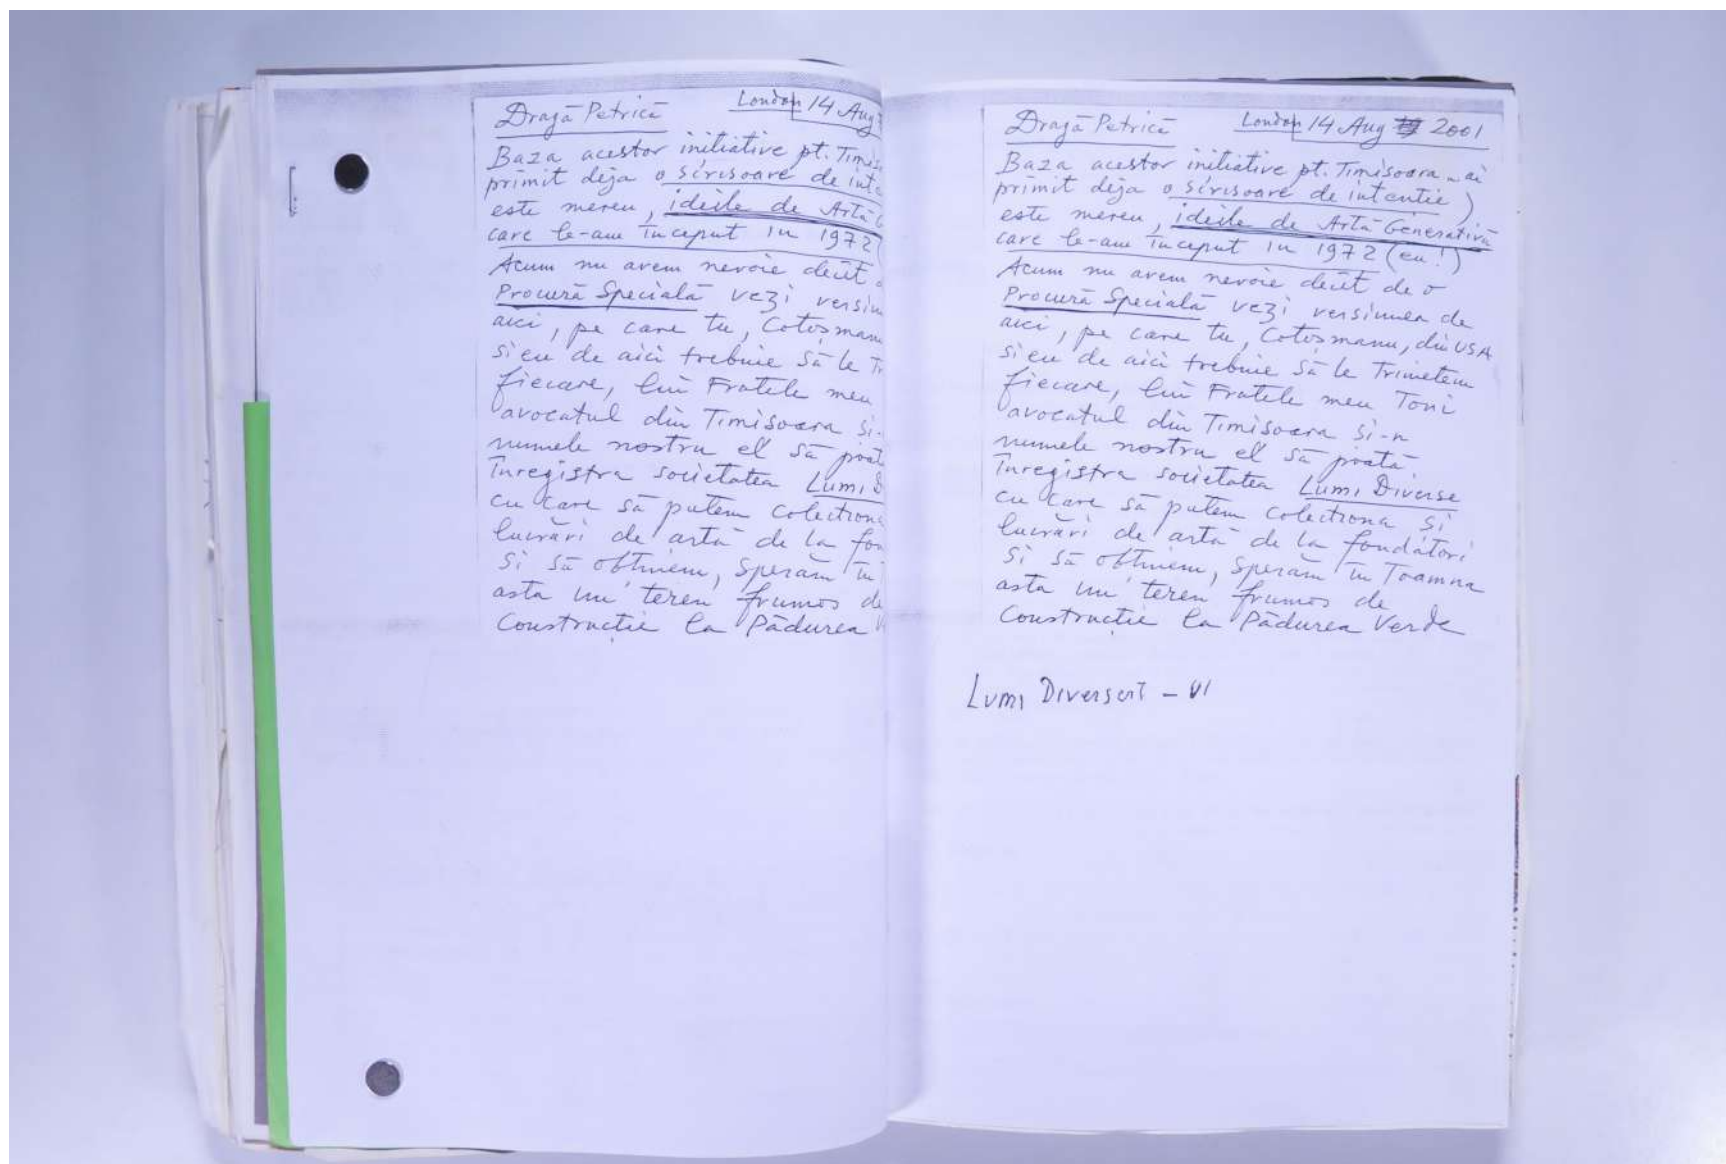 Dragă Petrică London 14 Aug
Baza acestor initiative pt. Timis
primit deja o scrisoare de inte
este mereu, ideile de Artă G
care le-am început în 1972 (
Acum nu avem nevoie decît d
Procură Specială vezi versiun
aici, pe care tu, Cotoșmanu
si eu de aici trebuie să le Tr
fiecare, lui Fratele meu
avocatul din Timisoara si-
numele nostru el să poat
înregistra societatea Lumi D
cu care să putem colectiona
lucrări de artă de la fon
Si să obtinem, sperăm în
asta un teren frumos de
Constructie la Pădurea V
Dragă Petrică London 14 Aug 2001
Baza acestor initiative pt. Timisoara - ai
primit deja o scrisoare de intentie)
este mereu, ideile de Artă Generativă
care le-am început în 1972 (eu!)
Acum nu avem nevoie decît de o
Procură Specială vezi versiunea de
aici, pe care tu, Cotoșmanu, din USA
si eu de aici trebuie să le Trimetem
fiecare, lui Fratele meu Toni
avocatul din Timisoara si-n
numele nostru el să poată
înregistra societatea Lumi Diverse
cu care să putem colectiona si
lucrări de artă de la fondatori
Si să obtinem, sperăm în Toamna
asta un teren frumos de
Constructie la Pădurea Verde
Lumi Diverse